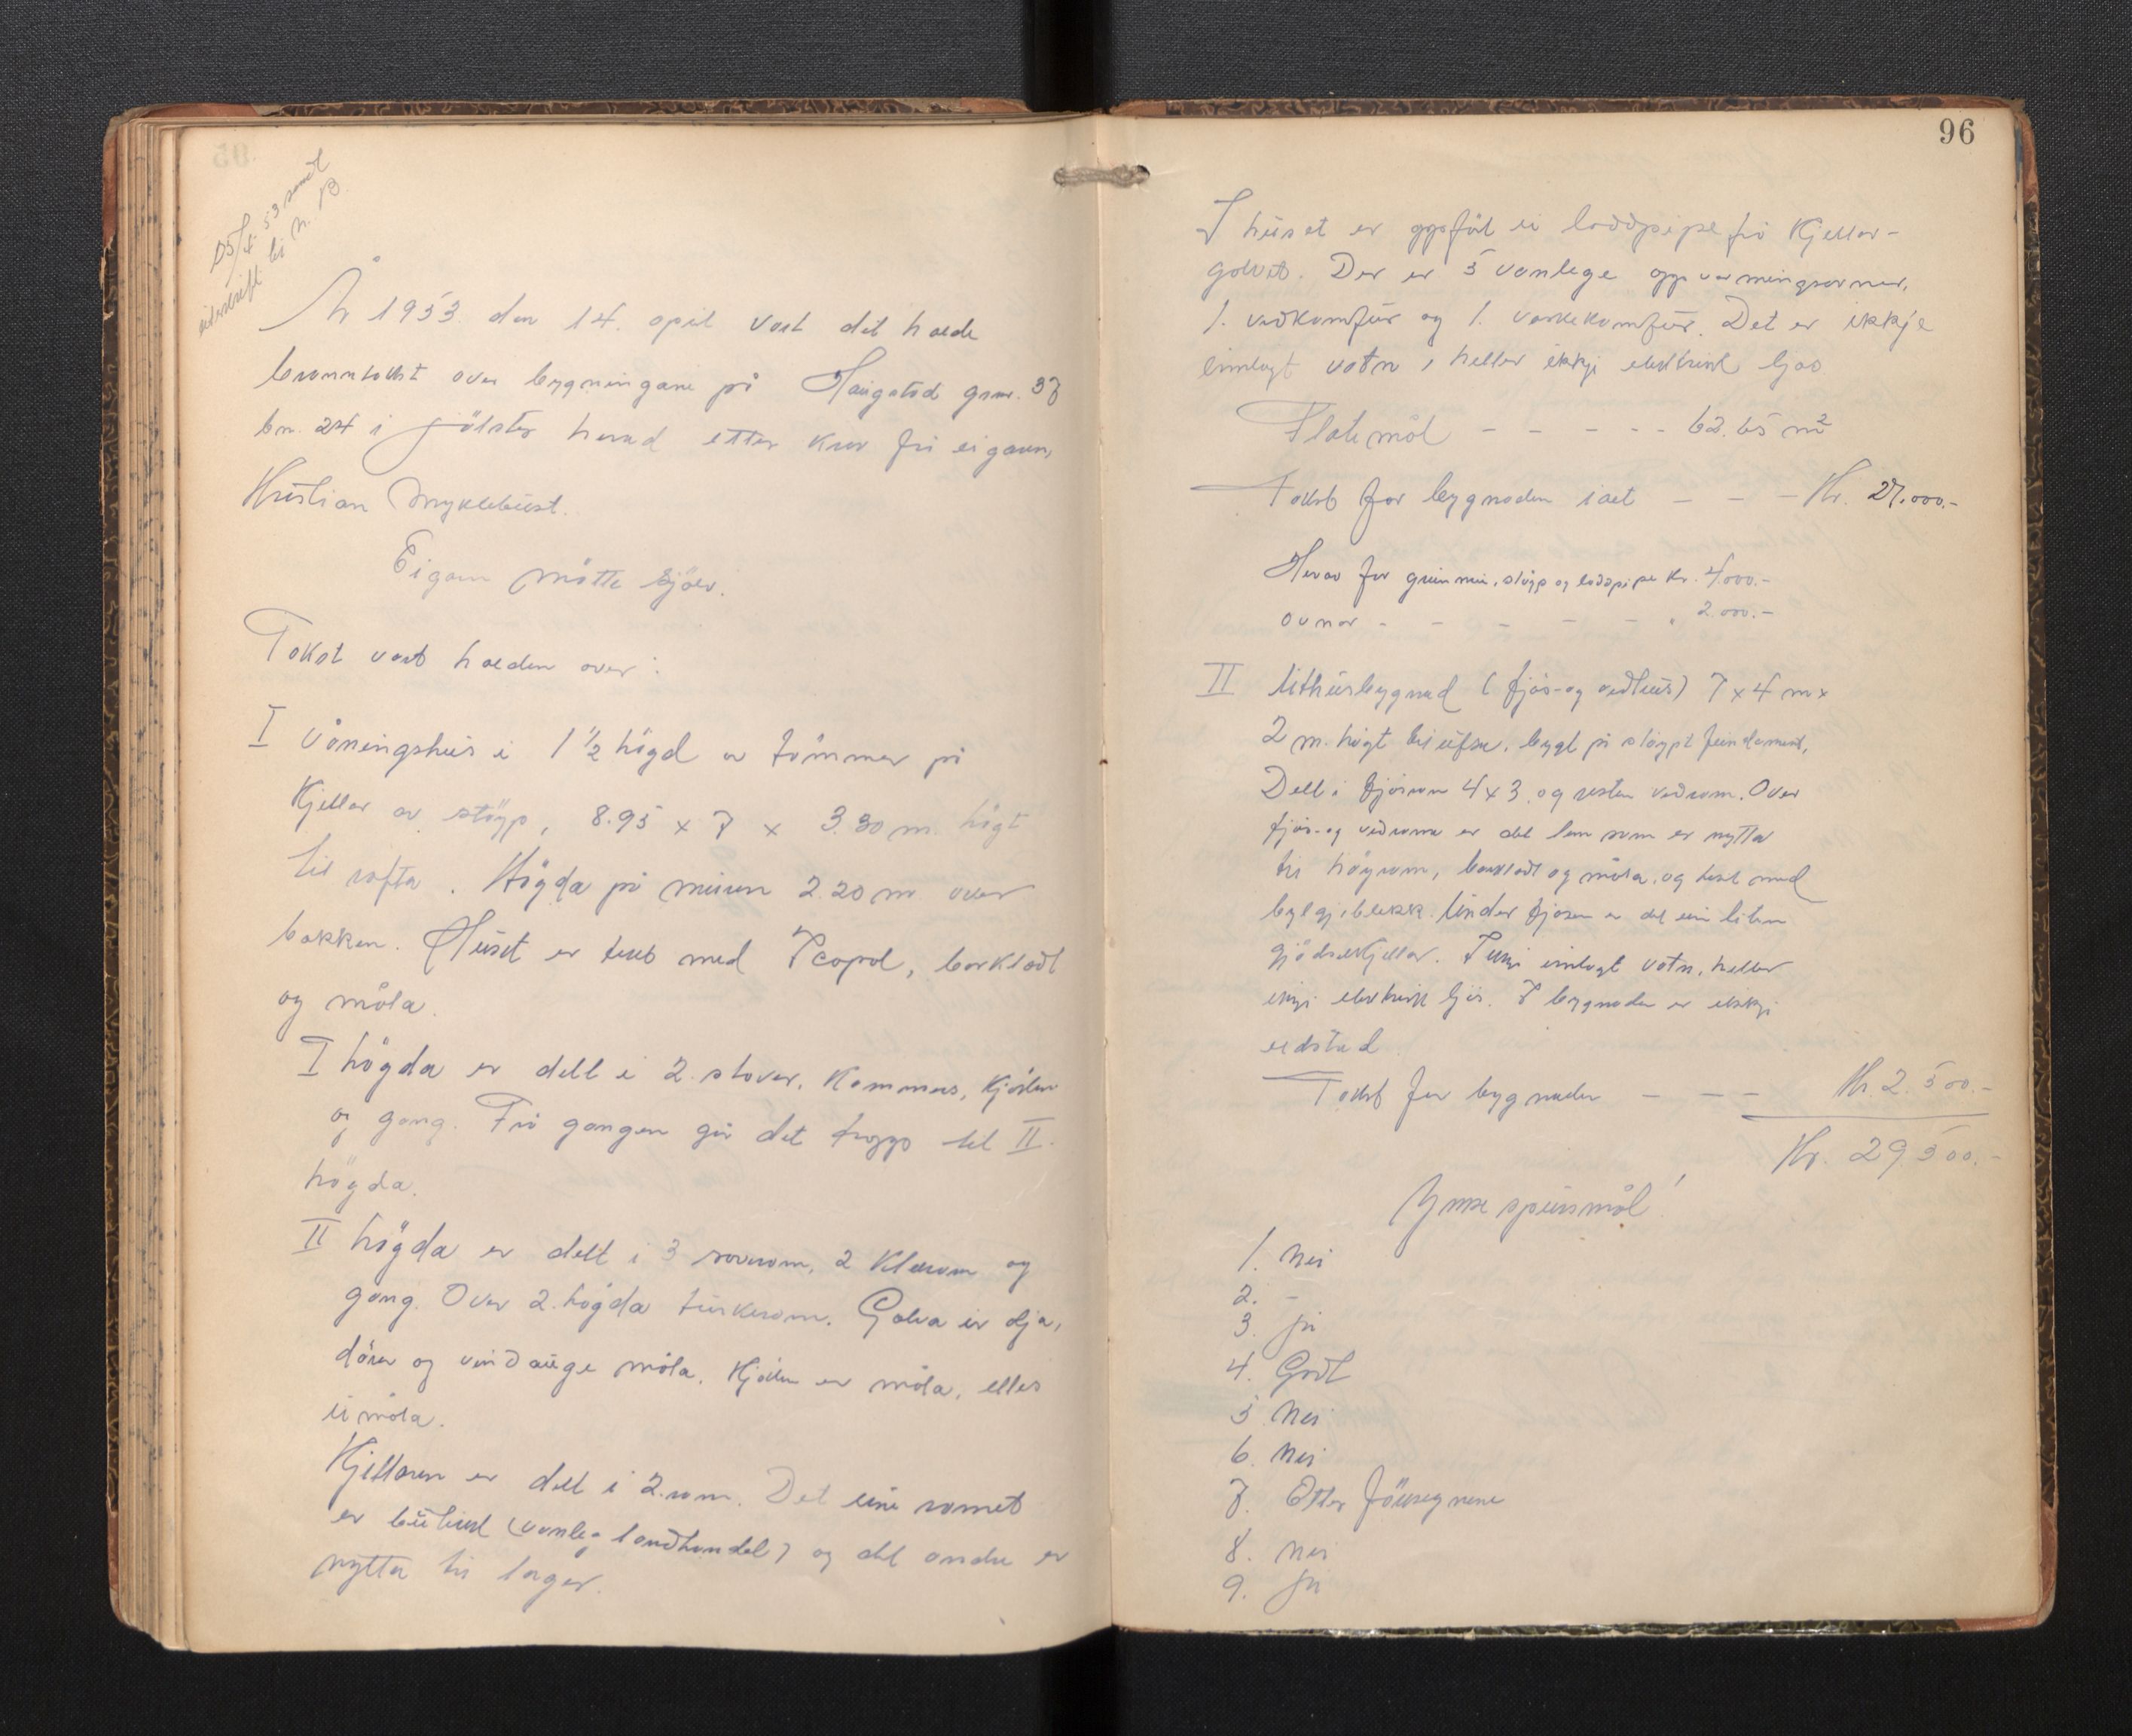 25/4-53 sendt
utskrift til N. B.
År 1953 den 14. april vart det halde
branntakst over bygningane på Haugstad gnr. 37
bn. 24 i Jølster herad etter krav frå eigaren,
Kristian Myklebust.
Eigaren møtte sjølv.
Takst vart halden over:
I Våningshus i 1 ½ högd av tömmer på
Kjellar av støyp, 8.95 x 7 x 3.30 m. högt
til rafta. Högda på muren 2.20 m over
bakken. Huset er tekt med Icopal, bordkledt
og måla.
I högda er delt i 2. stover, Kammers, Kjöken
og gang. Frå gangen går det trapp til II.
högda.
II högda er delt i 3 soverom, 2 klerom og
gang. Over 2. högda turkerom. Golva er olja,
dörer og vindauge måla. Kjöken er måla, elles
umåla.
Kjellaren er delt i 2. rom. Det eine romet
er butikk (vanleg landhandel) og det andre er
nytta til lager.
96
I huset er oppført ei loddpipe frå Kjellar-
golvet. Der er 5 vanlege oppvarmingsovner,
1. vedkomfur og 1. vaskekomfur. Det er ikkje
innlagt vatn, heller ikkje elektrisk ljos
Flatemål - - - - - 62.65 m²
Takst for bygnaden i alt - - - Kr. 27.000.-
Herav for grunnmur, støyp og loddpipe Kr. 4.000.-
ovnar - - - - - " 2.000.-
II Uthusbygnad (fjøs- og vedhus) 7 x 4 m x
2 m. högt til ufsa, bygt på støypt fundament,
Delt i fjøsrom 4 x 3. og resten vedrom. Over
fjøs- og vedroma er det lem som er nytta
til höyrom, bordkledt og måla, og tekt med
bylgjeblekk. Under fjøsen er det ein liten
gjødselkjellar. Ikkje innlagt vatn, heller
ikkje elektrisk ljos. I bygnaden er ikkje
eldstad.
Takst for bygnaden - - - Kr. 2.500.-
Kr. 29.500.-
Ymse spursmål!
1. Nei
2. -
3. Ja
4. Godt
5. Nei
6. Nei
7. Etter föresegnene
8. Nei
9. Ja